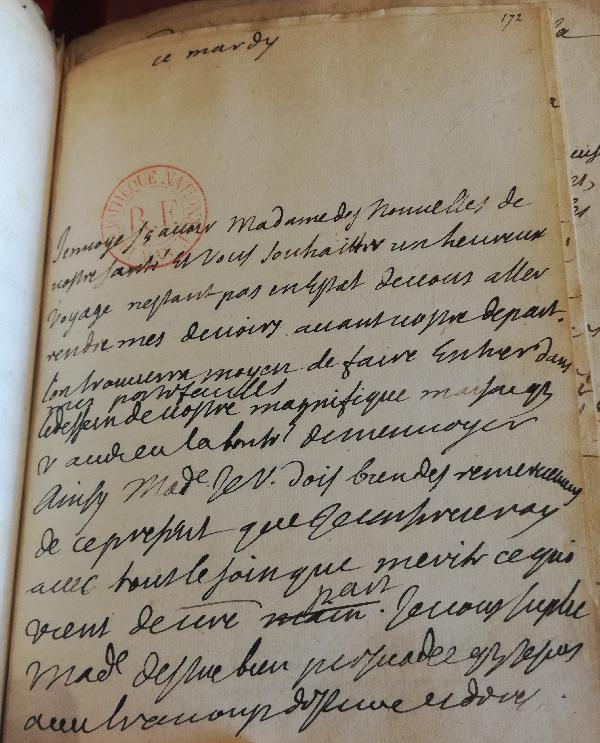 172
ce mardy
BIBLIOTHEQUE NATIONALE
R.F.
Jenvoye sçavoir Madame des Nouvelles de
vostre santé Et vous souhaitter un heureux
voyage nestant pas en Estat de vous aller
rendre mes devoirs avant vostre depart.
Lon trouvera moyen de faire Entrer dans
mes portefeuilles
le dessein de vostre magnifique maison
eu la bonté de menvoyer
Ainsy Made Je V. dois bien des remerciemens
de ce present que Je conserveray
avec tout le soin que merite ce qui
vient de vre main part. Je vous suplie
Made destre bien persuadée
avec beaucoup destime